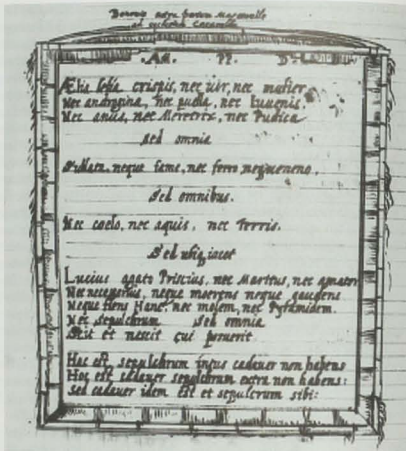 Ad. PP. D.
Ælia lelia crispis, nec vir, nec mulier
Nec androgina, nec puella, nec Iuuenis,
Nec anus, nec Meretrix, nec Pudica
Sed omnia
neque fame, nec ferro neq; ueneno,
Sed omnibus.
Nec coelo, nec aquis, nec Terris.
Sed ubiq; iacet
Lucius agato Priscius, nec Maritus, nec amator
Nec necessarius, neque moerens neque gaudens
Neque flens Hanc, nec molem, nec Pyramidem.
Nec sepulchrum Sed omnia
Scit et nescit cui
Hoc est sepulchrum intus cadauer non habens
Hoc est cadauer sepulchrum extra non habens:
Sed cadauer idem est et sepulcrum sibi: